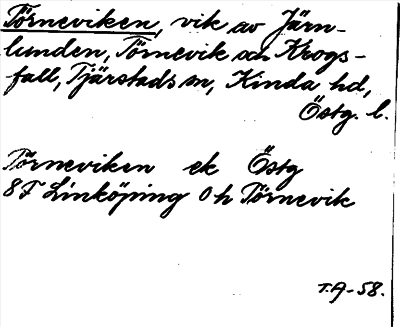 Törneviken, vik av Järn-
lunden, Törnevik och Krogs-
fall, Tjärstads sn, Kinda hd,
Östg. l.
Törneviken ek Östg
8F Linköping 0h Törnevik
T.A-58.